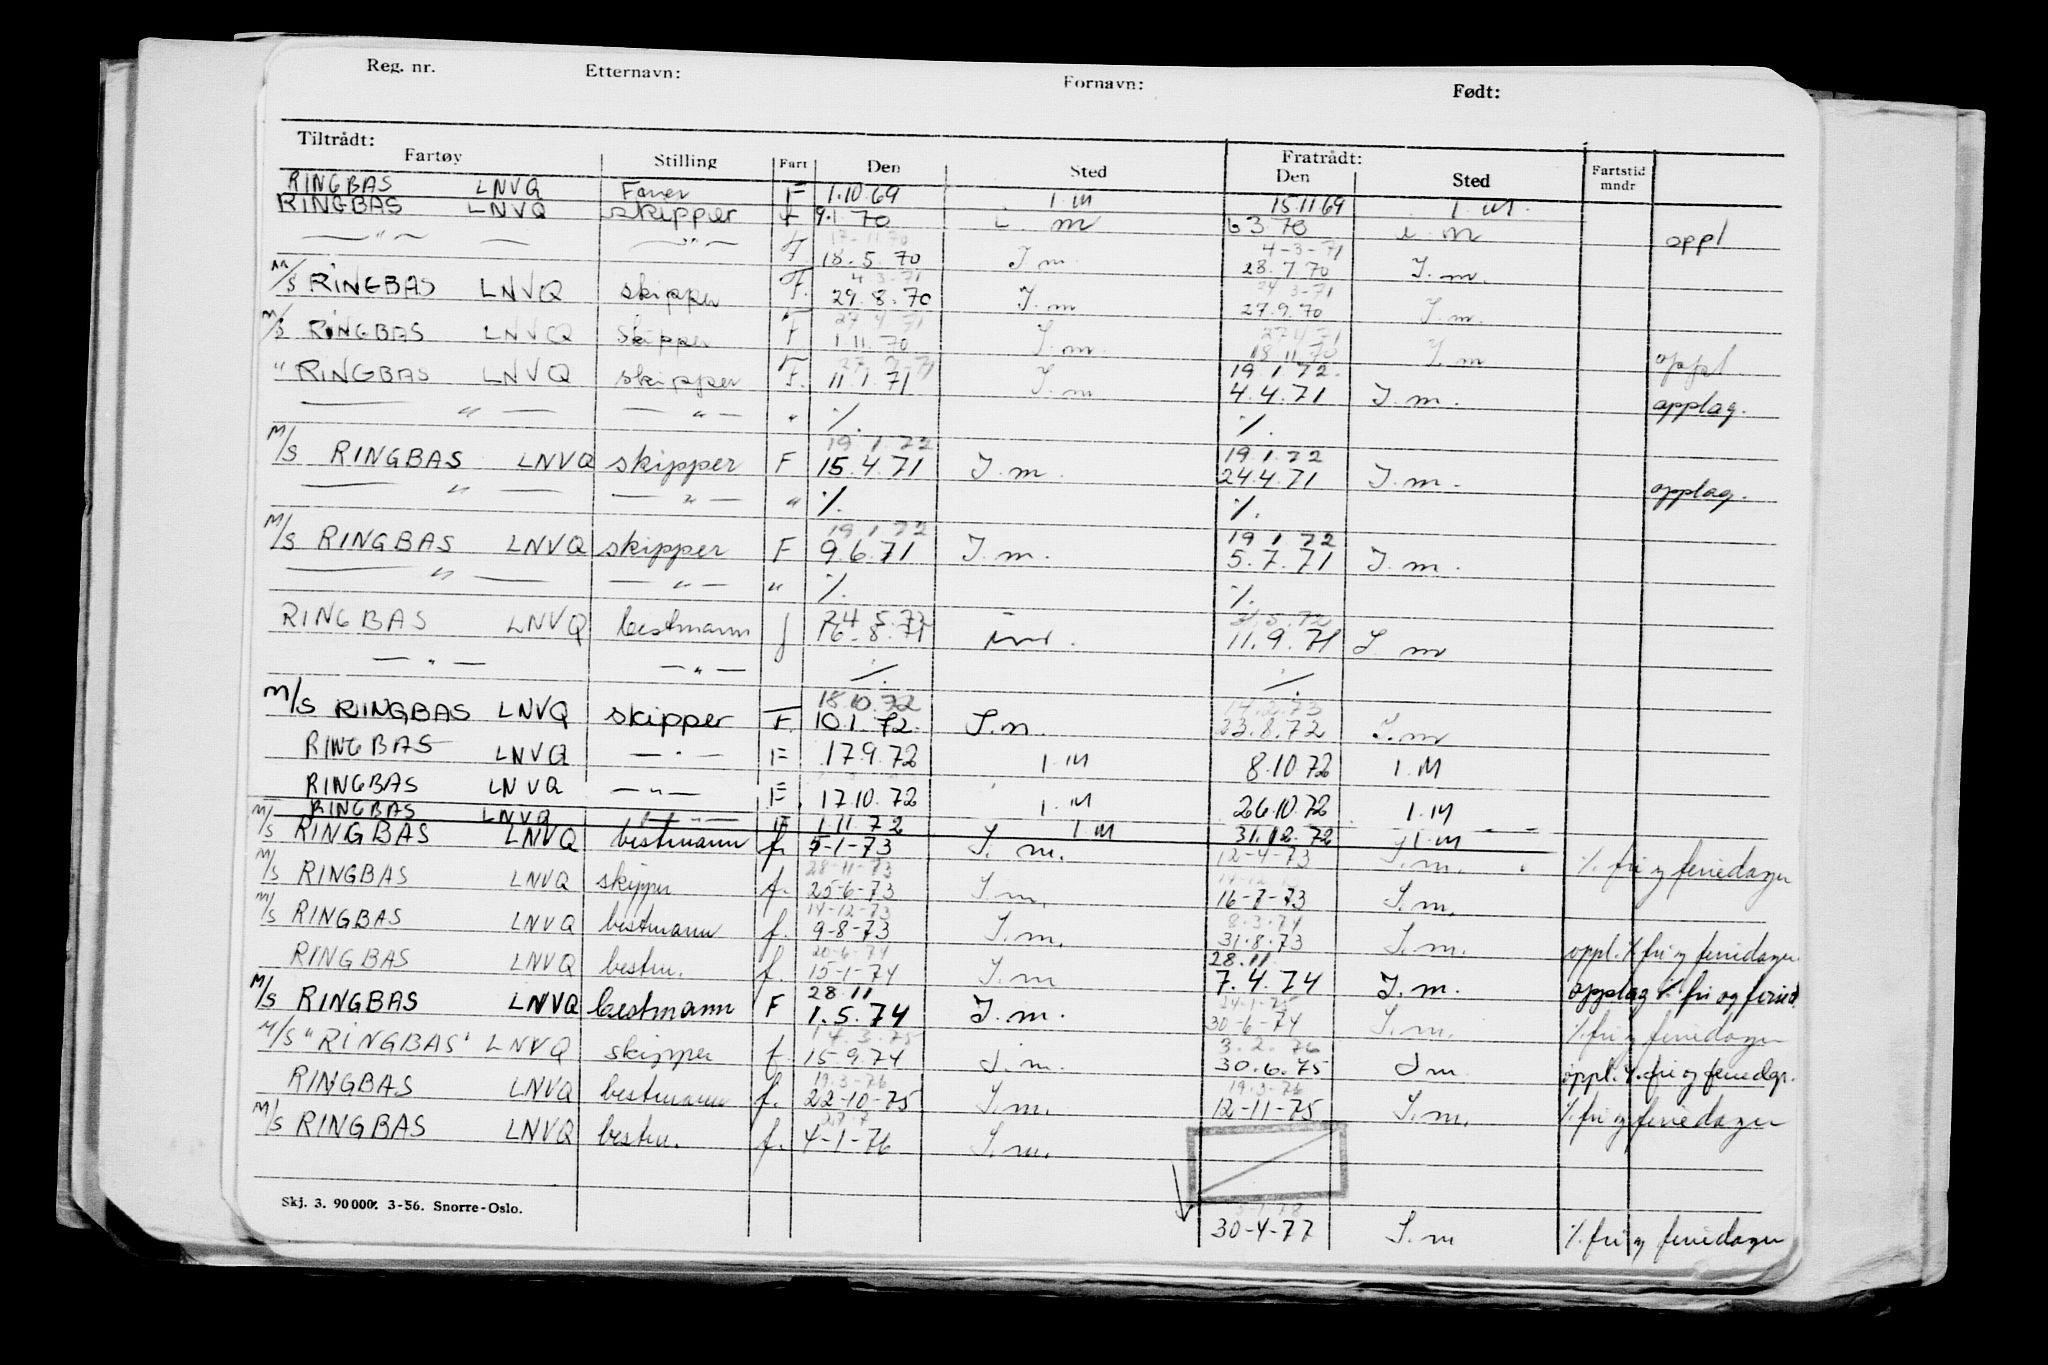 Reg. nr. Etternavn: Fornavn: Født:
Tiltrådt: Fratrådt:
Fartøy Stilling Fart Den Sted Den Sted Fartstid mndr
RINGBAS LNVQ Fører F 1.10.69 I.M 15.11.69 I.M.
RINGBAS LNVQ skipper F 9.1.70 i. m 6 3.70 i. m oppl
17-11-70 4-3-71
— " — — " — F. 18.5.70 I m. 28.7.70 I. m.
4-3-71 24 3-71
M/S RINGBAS LNVQ skipper F. 29.8.70 I. m 27.9.70 I. m.
27 4 71 27 4 71
M/S RINGBAS LNVQ skipper F 1.11.70 I. m. 18.11.70 I. m oppl
19 1 72.
" RINGBAS LNVQ skipper F. 11.1.71 I. m 4.4.71 I. m. opplag.
— " — — " — " %. %.
19 1 72 19 1 72
M/S RINGBAS LNVQ skipper F 15.4.71 I. m. 24.4.71 I. m. opplag.
— " — — " — " %. %.
19 1 72 19 1 72
M/S RINGBAS LNVQ skipper F 9.6.71 I. m. 5.7.71 I. m.
— " — — " — " %. %.
24 5.72
RINGBAS LNVQ bestmann f 16-8-71 11.9.71 I m
— " — — " — %. %.
18.10.72 14.2.73
M/S RINGBAS LNVQ skipper F. 10.1.72. I.m. 23.8.72 I.m
RINGBAS LNVQ — " — F 17.9.72 I.M 8.10.72 I.M
RINGBAS LNVQ — " — F 17.10.72 I.M 26.10.72 I.M
RINGBAS LNVQ — " — F 1.11.72 I M 31.12.72 I.M
M/S RINGBAS LNVQ bestmann f. 5-1-73 I. m. 12-4-73 I.m. %. fri og feriedager
28-11-73
M/S RINGBAS LNVQ skipper f. 25-6-73 I.m. 16-7-73 I.m.
14-12-73 8.3.74
M/S RINGBAS LNVQ bestmann f. 9-8-73 I.m. 31.8.73 I.m. oppl. %. fri og feriedager.
20-6-74 28.11
RINGBAS LNVQ bestm. f. 15-1-74 I.m 7.4.74 I.m. opplag %. fri og feried.
28 11 24-1-75
M/S RINGBAS LNVQ bestmann F 1.5.74 I.m. 30-6-74 I.m. %. fri og feriedager
14.3.75 3.2.76
M/S "RINGBAS" LNVQ skipper f. 15.9.74 I.m. 30.6.75 I m oppl. %. fri og feriedgr.
19.3-76 19.3-76
RINGBAS LNVQ bestmann f. 22-10-75 I.m. 12-11-75 I.m. %. fri og feriedager
M/S RINGBAS LNVQ bestm. f. 4-1-76 I.m.
30-4-77 I.m %. fri og feriedager
Skj. 3. 90000. 3-56. Snorre-Oslo.